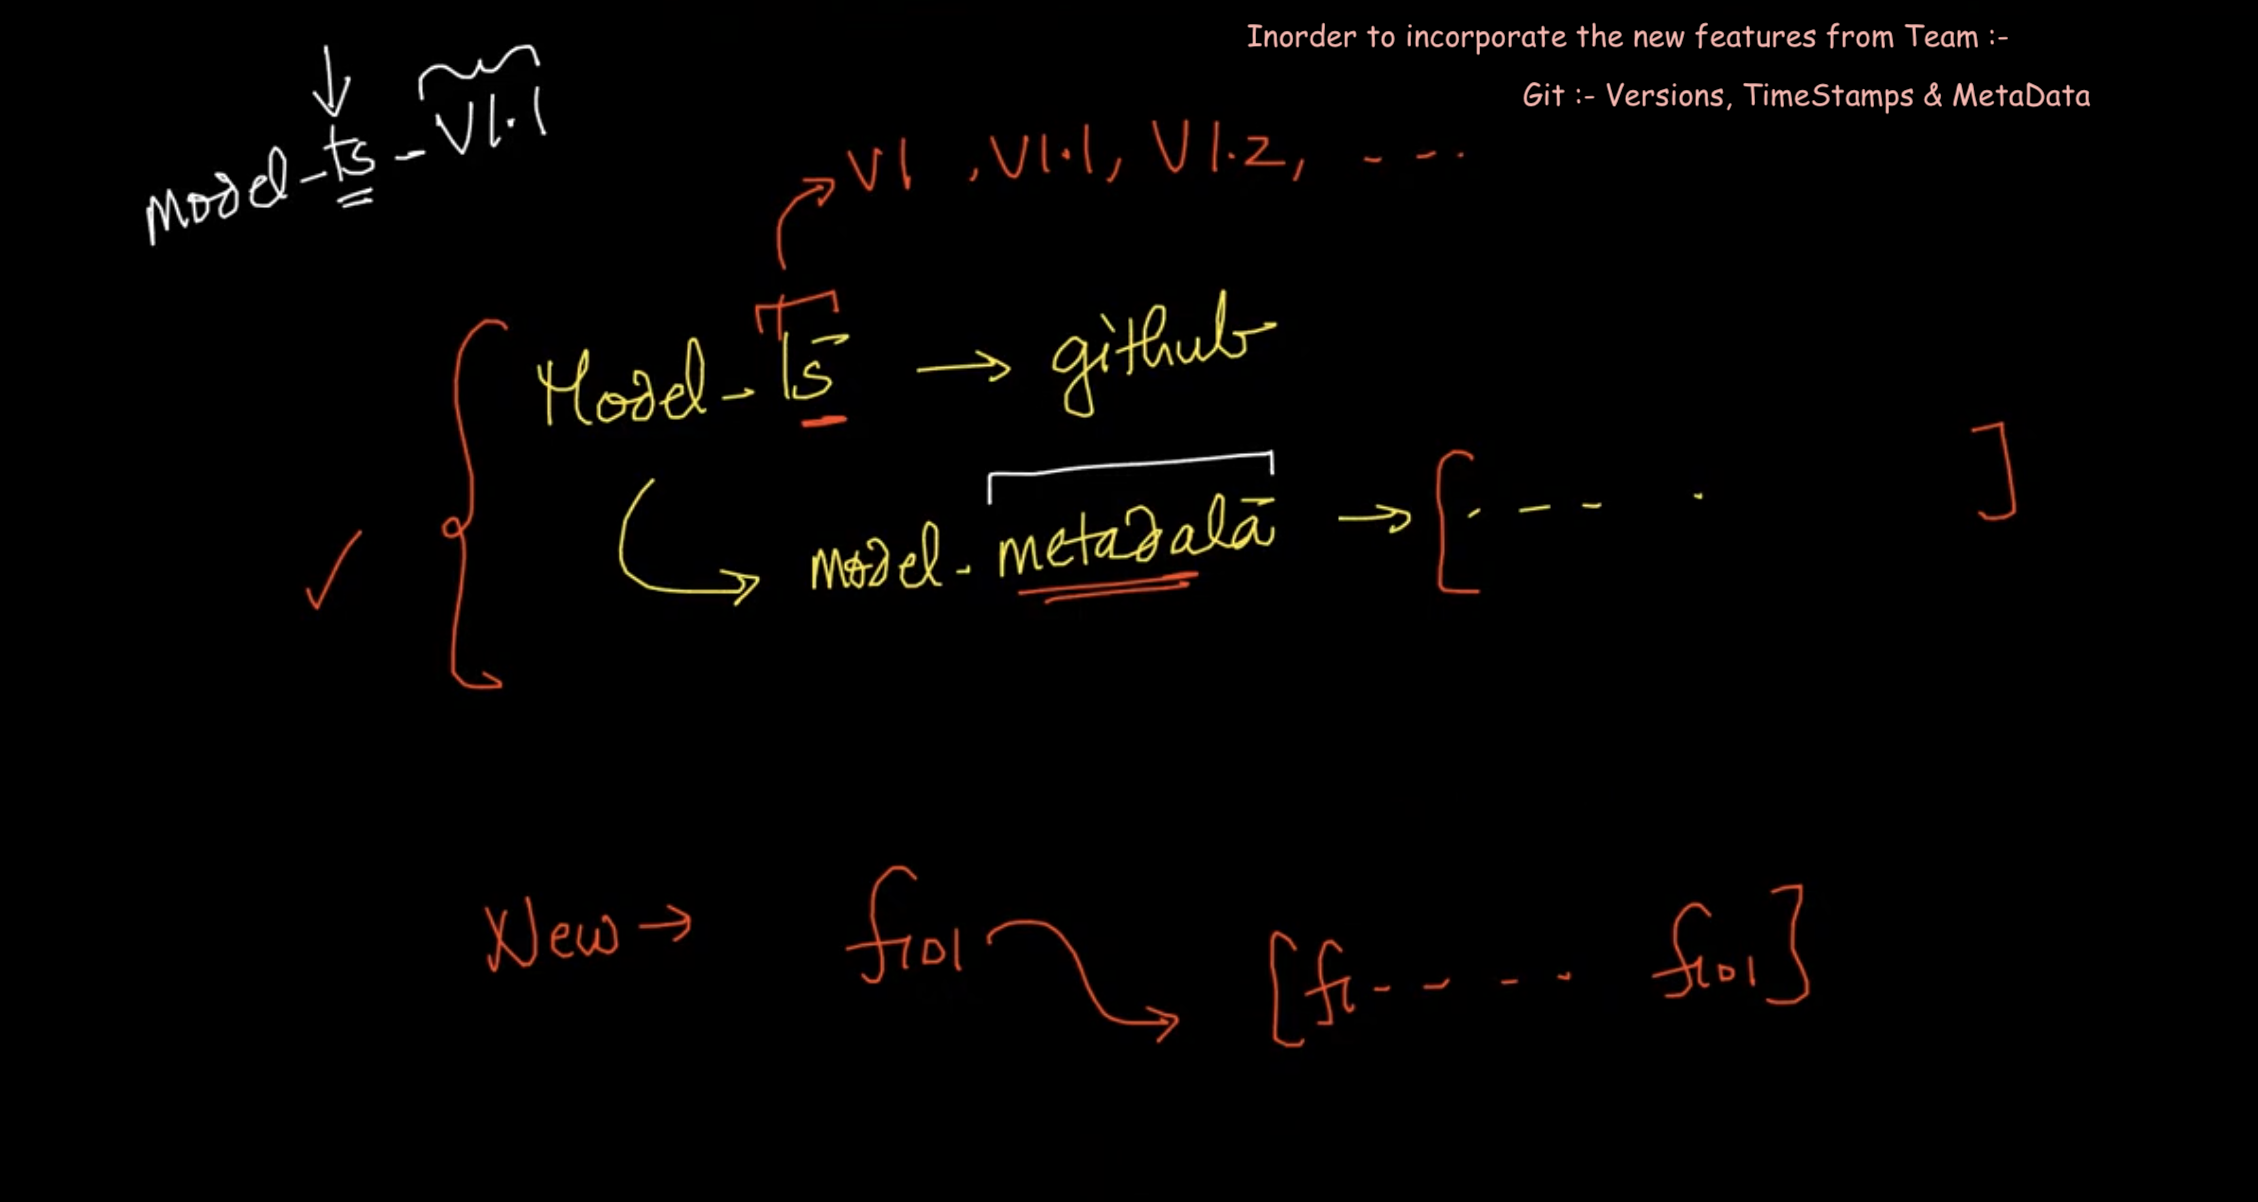 Inorder to incorporate the new features from Team :-
Git :- Versions, TimeStamps & MetaData
model-ts-V1.1
V1, V1.1, V1.2, - - -
Model-ts → github
model-metadata → [- - - - ]
New → f101
[f1 - - - - f101]